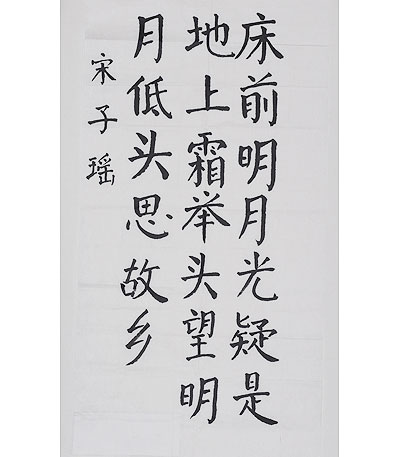 床前明月光疑是
地上霜举头望明
月低头思故乡
宋子瑶